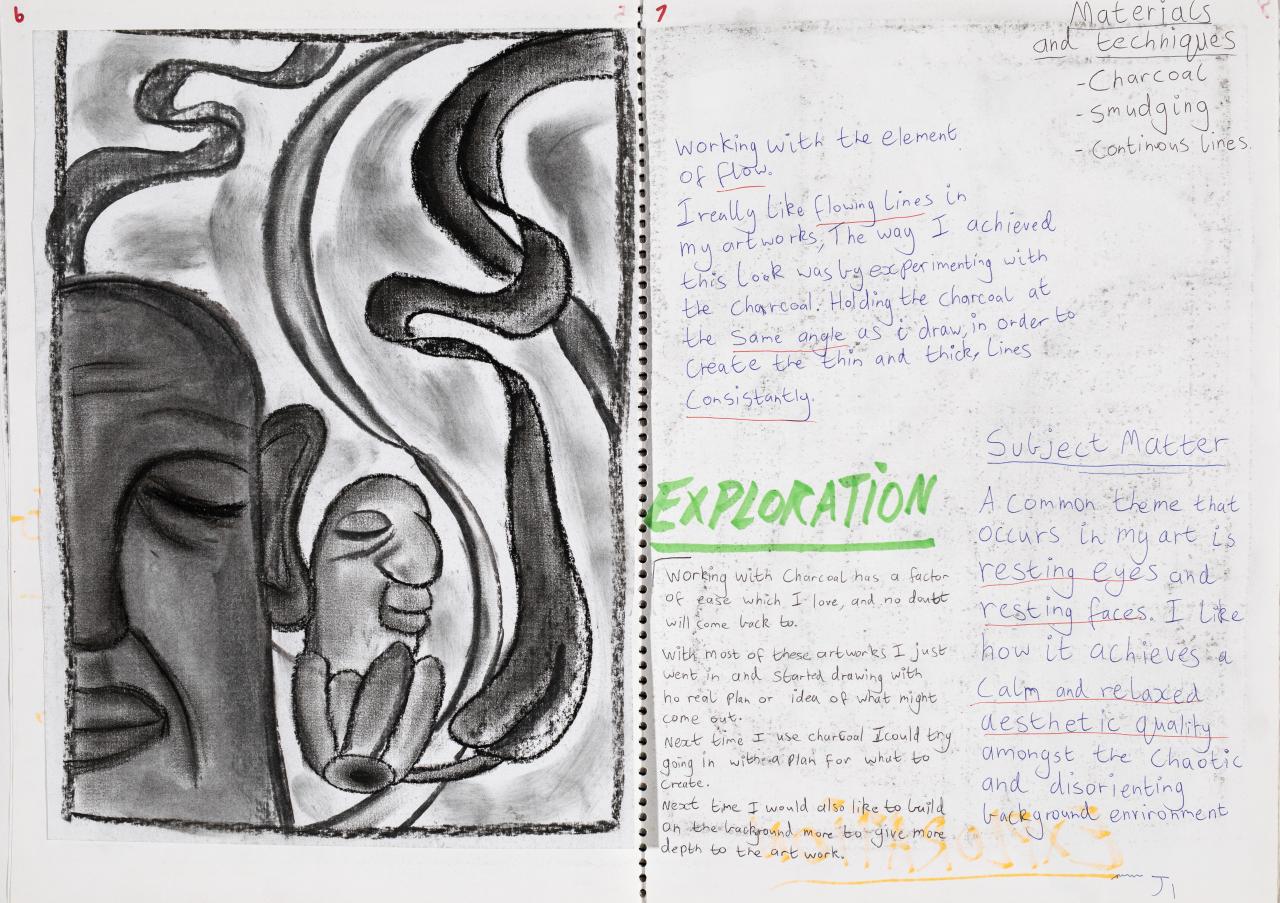 6
7
Materials
and techniques
- Charcoal
- smudging
- Continous lines.
working with the element
of flow.
I really like flowing lines in
my artworks, The way I achieved
this look was by experimenting with
the charcoal. Holding the charcoal at
the same angle as i draw, in order to
create the thin and thick, lines
Consistantly.
EXPLORATION
Working with Charcoal has a factor
of ease which I love, and no doubt
will come back to.
With most of these artworks I just
went in and started drawing with
no real plan or idea of what might
come out.
Next time I use charcoal I could try
going in with a plan for what to
create.
Next time I would also like to build
on the background more to give more
depth to the art work.
Subject Matter
A common theme that
occurs in my art is
resting eyes and
resting faces. I like
how it achieves a
Calm and relaxed
aesthetic quality
amongst the Chaotic
and disorienting
background environment